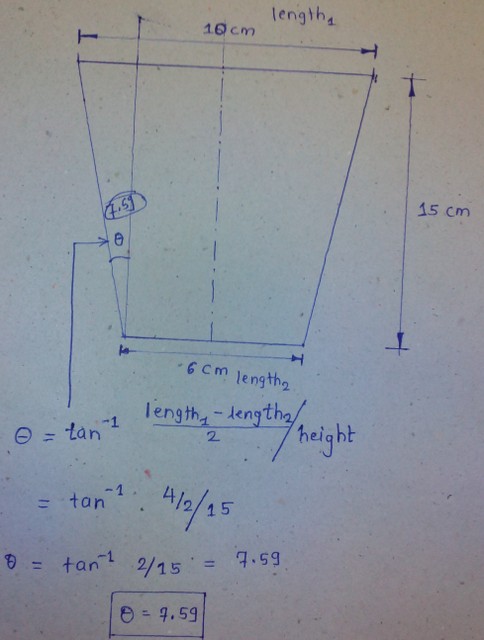 length₁
10 cm
7.59
θ
15 cm
6 cm length₂
θ = tan⁻¹ length₁ - length₂ / 2 / height
= tan⁻¹ 4/2/15
θ = tan⁻¹ 2/15 = 7.59
θ = 7.59